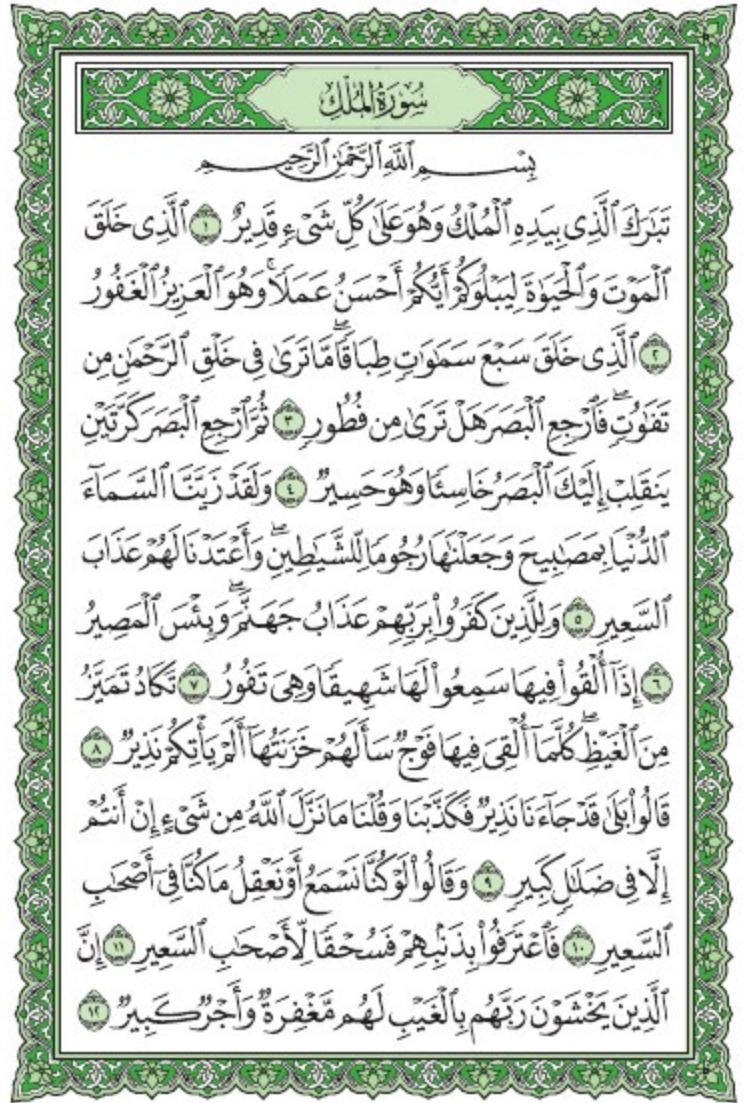 سُورَةُ المُلْكِ
بِسْمِ ٱللَّهِ ٱلرَّحْمَٰنِ ٱلرَّحِيمِ
تَبَٰرَكَ ٱلَّذِى بِيَدِهِ ٱلْمُلْكُ وَهُوَ عَلَىٰ كُلِّ شَىْءٍ قَدِيرٌ ١ ٱلَّذِى خَلَقَ
ٱلْمَوْتَ وَٱلْحَيَوٰةَ لِيَبْلُوَكُمْ أَيُّكُمْ أَحْسَنُ عَمَلًا ۚ وَهُوَ ٱلْعَزِيزُ ٱلْغَفُورُ
٢ ٱلَّذِى خَلَقَ سَبْعَ سَمَٰوَٰتٍ طِبَاقًا ۖ مَّا تَرَىٰ فِى خَلْقِ ٱلرَّحْمَٰنِ مِن
تَفَٰوُتٍ ۖ فَٱرْجِعِ ٱلْبَصَرَ هَلْ تَرَىٰ مِن فُطُورٍ ٣ ثُمَّ ٱرْجِعِ ٱلْبَصَرَ كَرَّتَيْنِ
يَنقَلِبْ إِلَيْكَ ٱلْبَصَرُ خَاسِئًا وَهُوَ حَسِيرٌ ٤ وَلَقَدْ زَيَّنَّا ٱلسَّمَآءَ
ٱلدُّنْيَا بِمَصَٰبِيحَ وَجَعَلْنَٰهَا رُجُومًا لِّلشَّيَٰطِينِ ۖ وَأَعْتَدْنَا لَهُمْ عَذَابَ
ٱلسَّعِيرِ ٥ وَلِلَّذِينَ كَفَرُوا۟ بِرَبِّهِمْ عَذَابُ جَهَنَّمَ ۖ وَبِئْسَ ٱلْمَصِيرُ
٦ إِذَآ أُلْقُوا۟ فِيهَا سَمِعُوا۟ لَهَا شَهِيقًا وَهِىَ تَفُورُ ٧ تَكَادُ تَمَيَّزُ
مِنَ ٱلْغَيْظِ ۖ كُلَّمَآ أُلْقِىَ فِيهَا فَوْجٌ سَأَلَهُمْ خَزَنَتُهَآ أَلَمْ يَأْتِكُمْ نَذِيرٌ ٨
قَالُوا۟ بَلَىٰ قَدْ جَآءَنَا نَذِيرٌ فَكَذَّبْنَا وَقُلْنَا مَا نَزَّلَ ٱللَّهُ مِن شَىْءٍ إِنْ أَنتُمْ
إِلَّا فِى ضَلَٰلٍ كَبِيرٍ ٩ وَقَالُوا۟ لَوْ كُنَّا نَسْمَعُ أَوْ نَعْقِلُ مَا كُنَّا فِىٓ أَصْحَٰبِ
ٱلسَّعِيرِ ١٠ فَٱعْتَرَفُوا۟ بِذَنۢبِهِمْ فَسُحْقًا لِّأَصْحَٰبِ ٱلسَّعِيرِ ١١ إِنَّ
ٱلَّذِينَ يَخْشَوْنَ رَبَّهُم بِٱلْغَيْبِ لَهُم مَّغْفِرَةٌ وَأَجْرٌ كَبِيرٌ ١٢